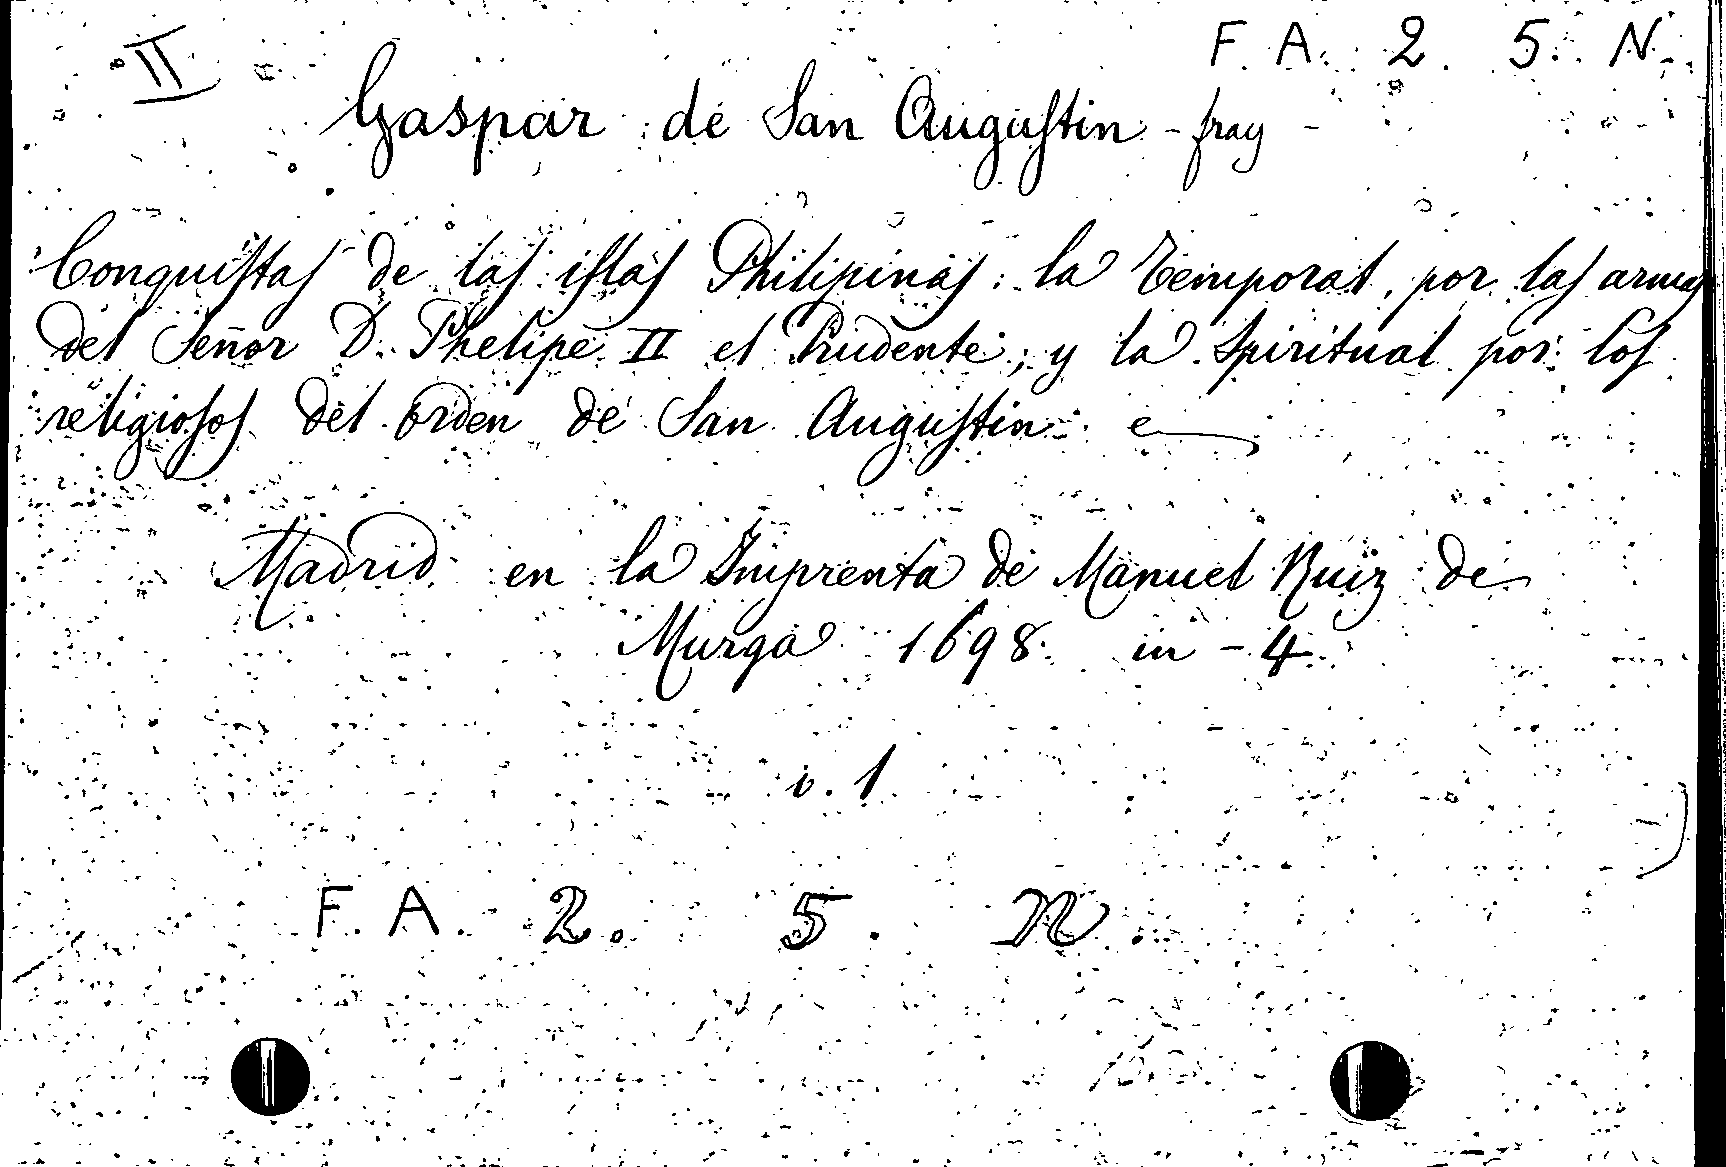 II
F. A. 2. 5. N.
Gaspar de San Auguſtin - fray -
Conquiſtas de las iſlas Philipinas: la Temporal, por las armas
del Señor D. Phelipe II el Prudente; y la Spiritual por los
religioſos del orden de San Auguſtin: e
Madrid en la Imprenta de Manuel Ruiz de
Murga 1698 in - 4
v. 1
F. A. 2. 5. N.